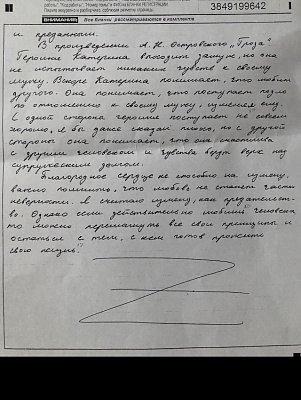 3849199642
ВНИМАНИЕ! Все бланки рассматриваются в комплекте
и преданными.
В произведении А. Н. Островского "Гроза"
Героиня Катерина выходит замуж, но она
не испытывает никаких чувств к своему
мужу. Вскоре Катерина понимает, что любит
другого. Она понимает, что поступает подло
по отношению к своему мужу, изменяя ему.
С одной стороны героиня поступает не совсем
хорошо, я бы даже сказал низко, но с другой
стороны она понимает, что она счастлива
с другим человеком и чувства берут верх над
супружеским долгом.
Благородное сердце не способно на измену,
важно помнить, что любовь не станет
неверности. Я считаю измену, как предательст-
во. Однако если действительно любишь человека
то можно перешагнуть все свои принципы и
остаться с тем, с кем готов прожить
свою жизнь.